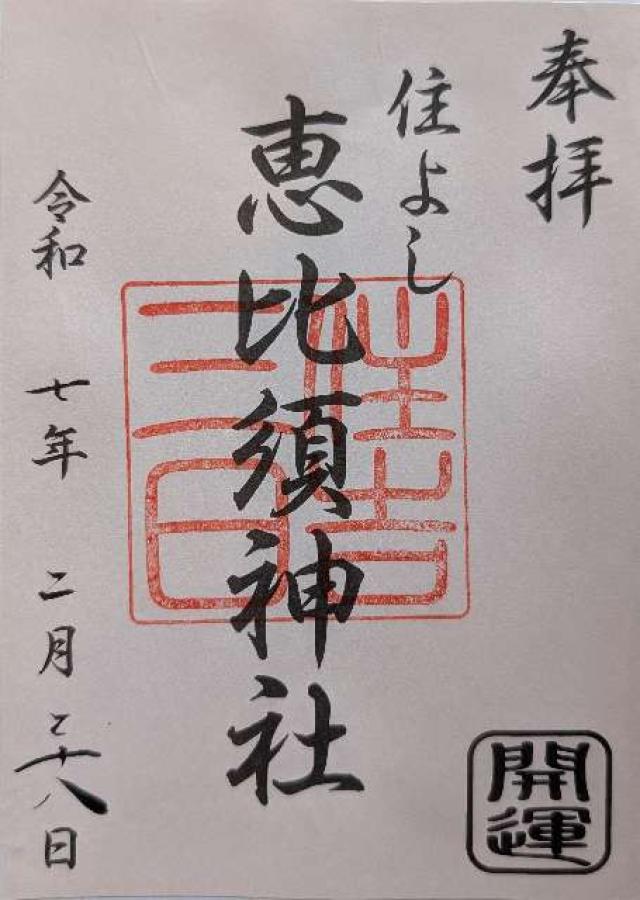 奉拝
住よし
恵比須神社
住吉
三日
令和 七年 二月 二十八日
開運